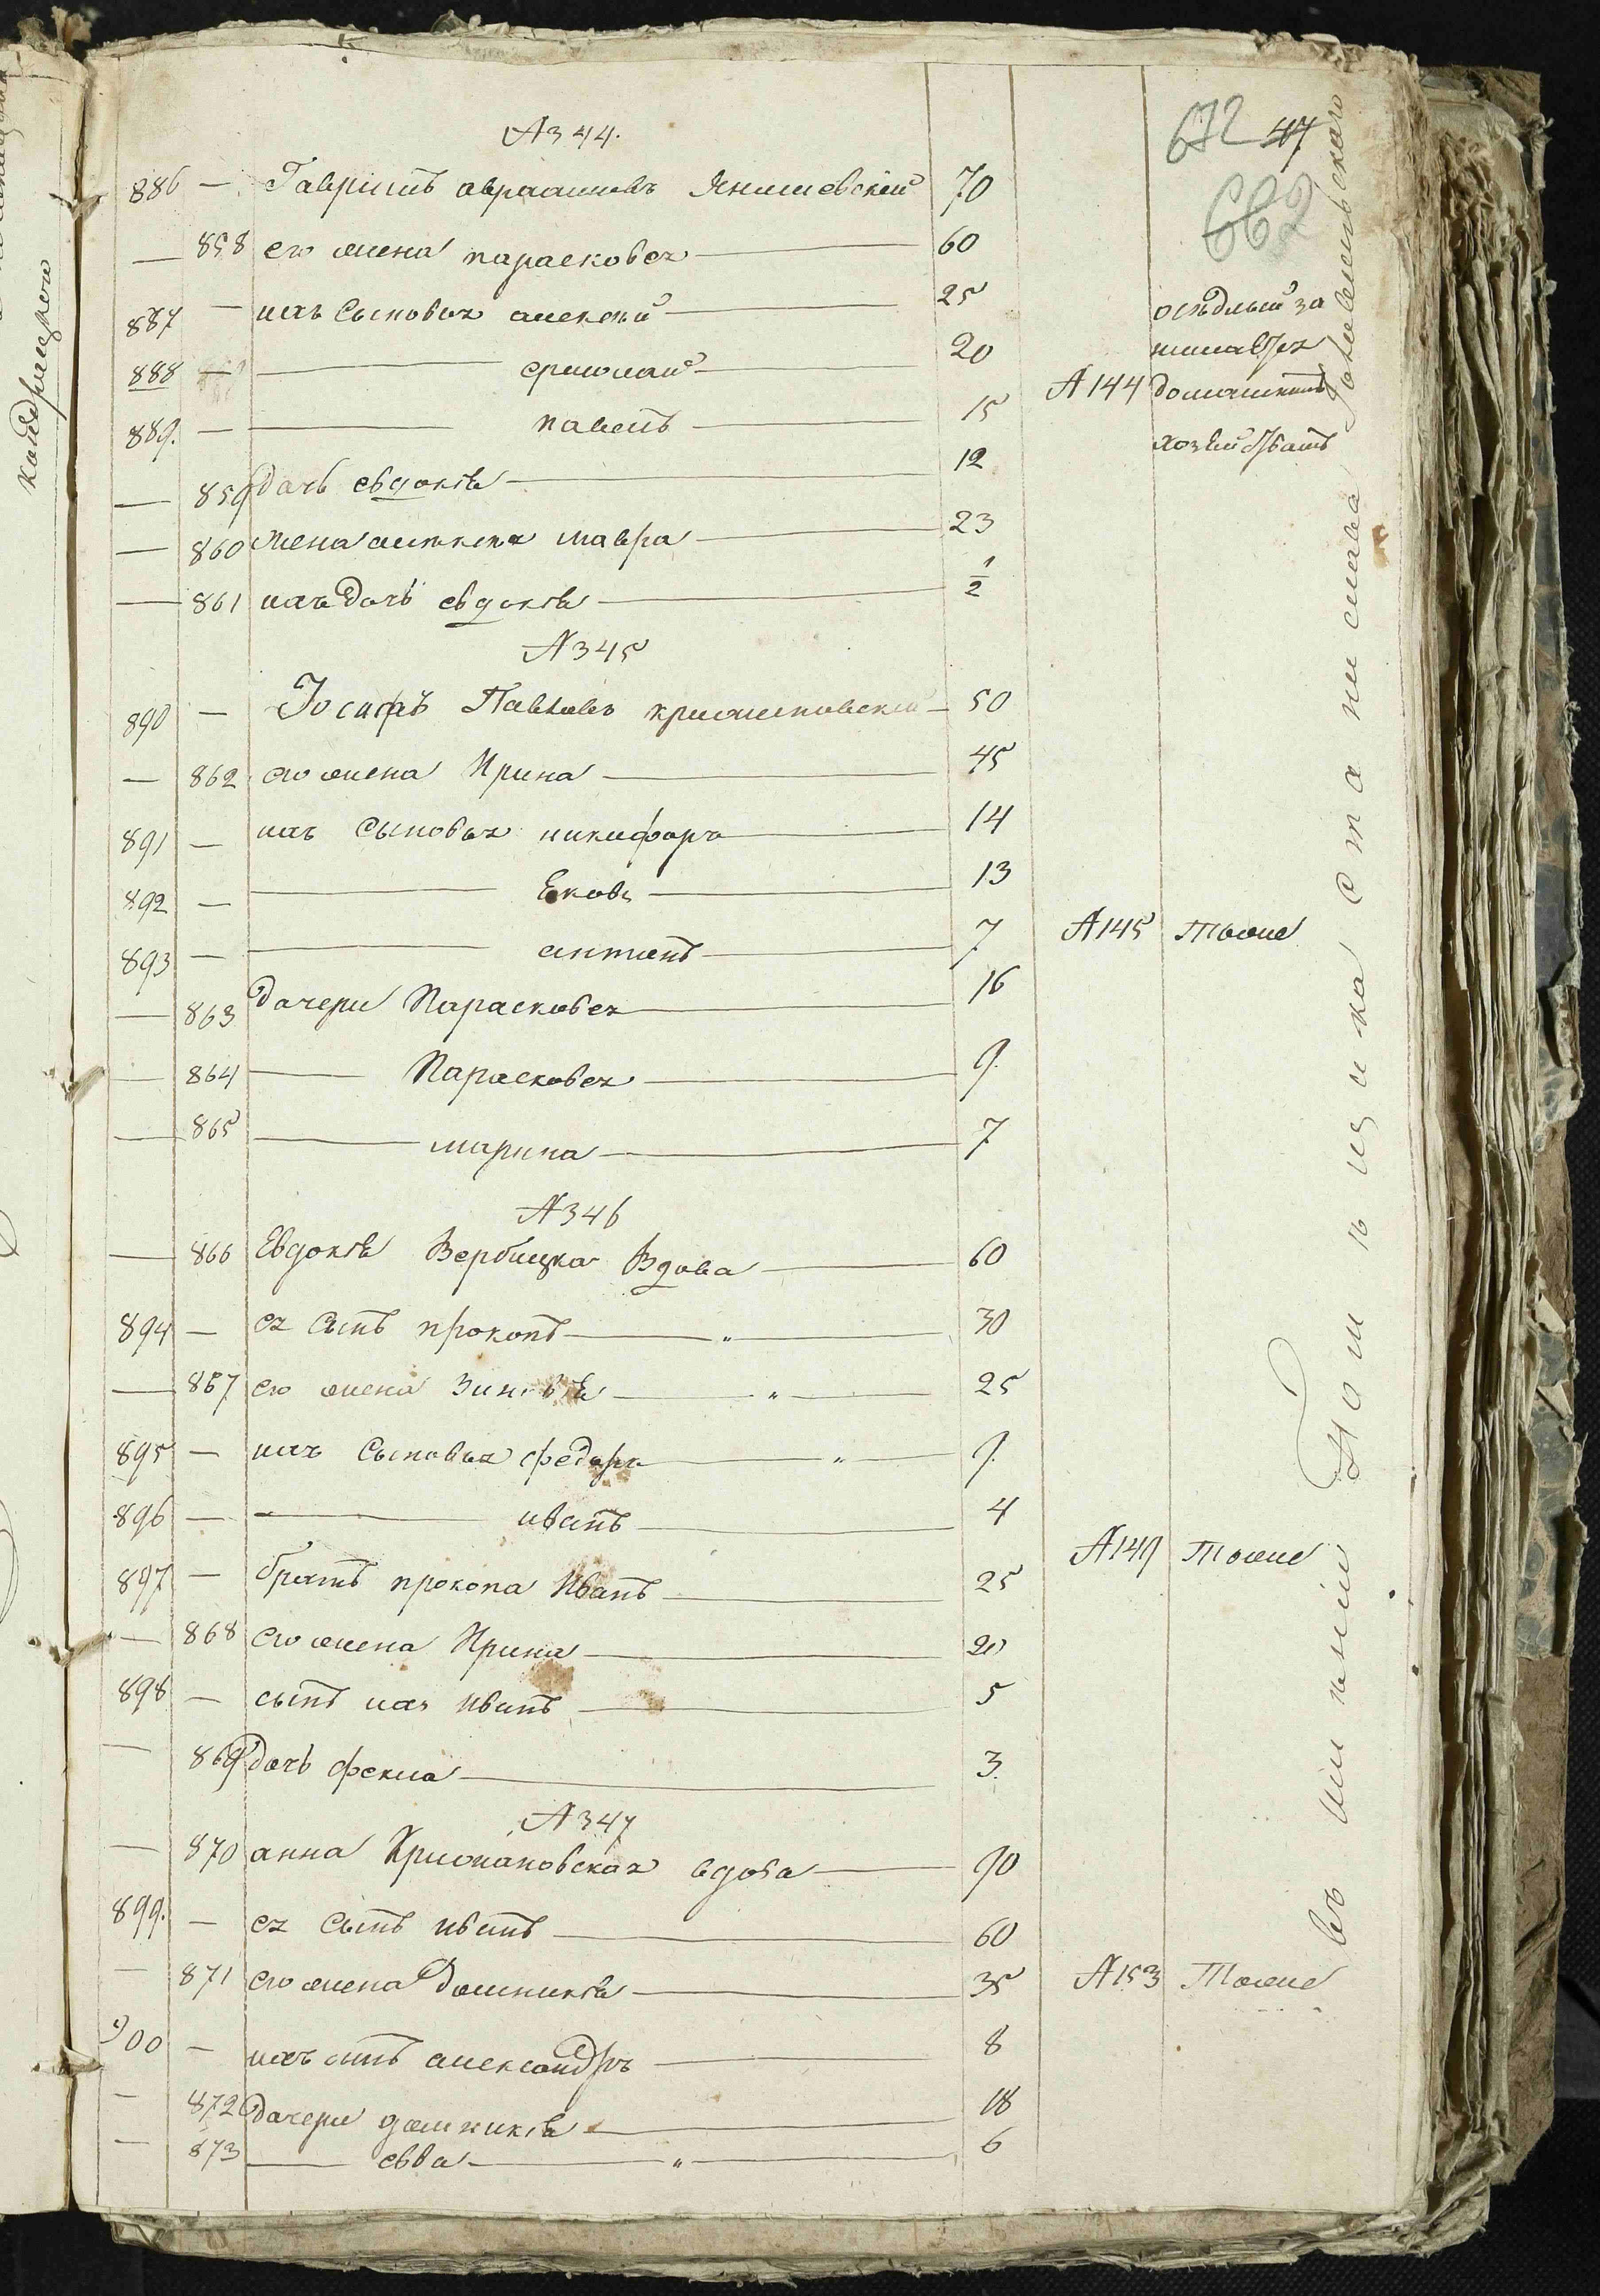 672 47
662
№ 344.
886 — Гаврiилъ авраамовъ Янишевскiй 70
— 858 его жена парасковея 60
887 — ихъ сыновья алексѣй 25
888 — ермолай 20
889. — павелъ 15
— 859 дочь евдокiя 12
— 860 жена алексея мавра 23
— 861 ихъ дочь евдокiя 1/2
№ 144 осѣдлый за
домашнимъ
хозяйствомъ
№ 345
890 — Iосифъ Павловъ крижановскiй 50
— 862 его жена Ирина 45
891 — ихъ сыновья никифоръ 14
892 — Яковъ 13
893 — антонъ 7
— 863 дочери Парасковея 16
— 864 Парасковея 9.
— 865 марина 7
№ 145 Тоже
№ 346
— 866 Евдокiя Вербицка вдова 60
894 — ея сынъ прокопъ " 30
— 867 его жена Зиновiя " 25
895 — ихъ сыновья федоръ " 9.
896 — иванъ 4
897 — братъ прокопа Иванъ 25
— 868 его жена Ирина 20
898 — сынъ ихъ иванъ 5
— 869 дочь фекла 3.
№ 149 Тоже
№ 347
— 870 анна Крижановская вдова 90
899. — ея сынъ иванъ 60
— 871 его жена Домникiя 35
900 — ихъ сынъ александръ 8
— 872 дочери домникiя 18
— 873 евва " 6
№ 153 Тоже
въ имѣнiи помѣщика Станислава